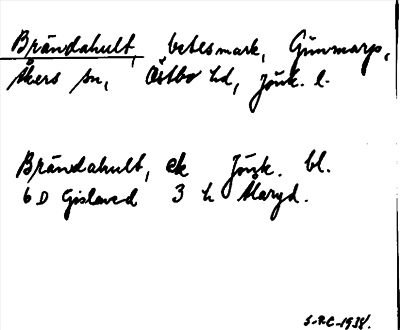 Brändahult, betesmark, Gunnarp,
Åkers sn, Östbo hd, Jönk. l.
Brändahult, ek Jönk. bl.
6 D Gislaved 3 h Åkaryd.
S-RC-1938.